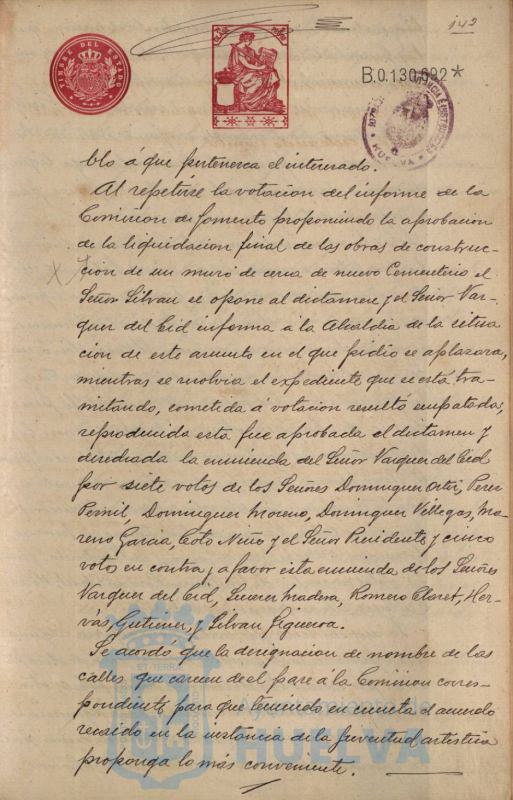 142
TIMBRE DEL ESTADO
B.0.130.692*
HUELVA
blo á que pertenezca el interesado.
Al repetirse la votacion del informe de la
Comision de fomento proponiendo la aprobacion
de la liquidacion final de las obras de construc-
cion de un muro de cerca de nuevo Cementerio el
Señor Silvan se opone al dictamen y el Señor Vaz-
quez del Cid informa á la Alcaldia de la situa
cion de este asunto en el que pidio se aplazara,
mientras se resolvia el expediente que se está tra-
mitando, cometida á votacion resultó empatada,
reproducida esta fue aprobada el dictamen y
desechada la enmienda del Señor Vazquez del Cid
por siete votos de los Señores Dominguez Perez
Pernil, Dominguez Moreno, Dominguez Villegas, Mo
reno Garcia, Coto Niño y el Señor Presidente y cinco
votos en contra, a favor esta enmienda de los Señores
Vazquez del Cid, Madera, Romero Claret, Her-
vás Gutierrez, y Silvan Figueroa.
Se acordó que la designacion de nombre de las
calles que carecen de el pase á la Comision corres-
pondiente para que teniendo en cuenta el acuerdo
recaido en la instancia de la Juventud artistica
proponga lo mas conveniente.
Ayuntamiento de
HUELVA